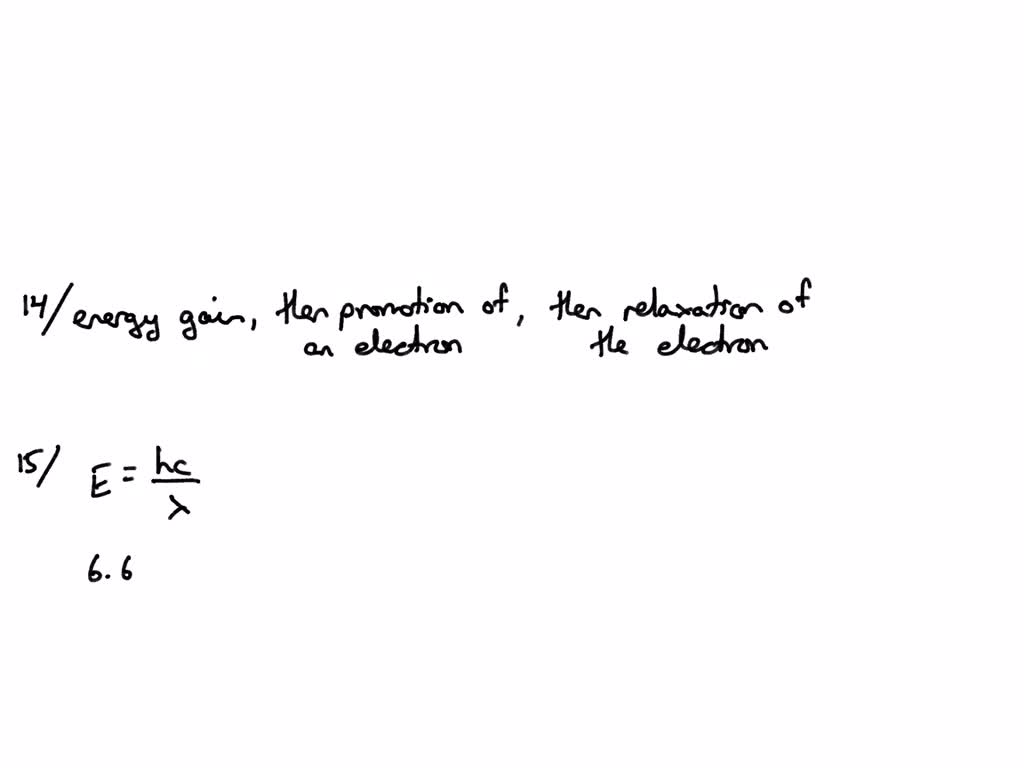 14/ energy gain, then promotion of, then relaxation of
an electron the electron
15/ E = hc/λ
6.6